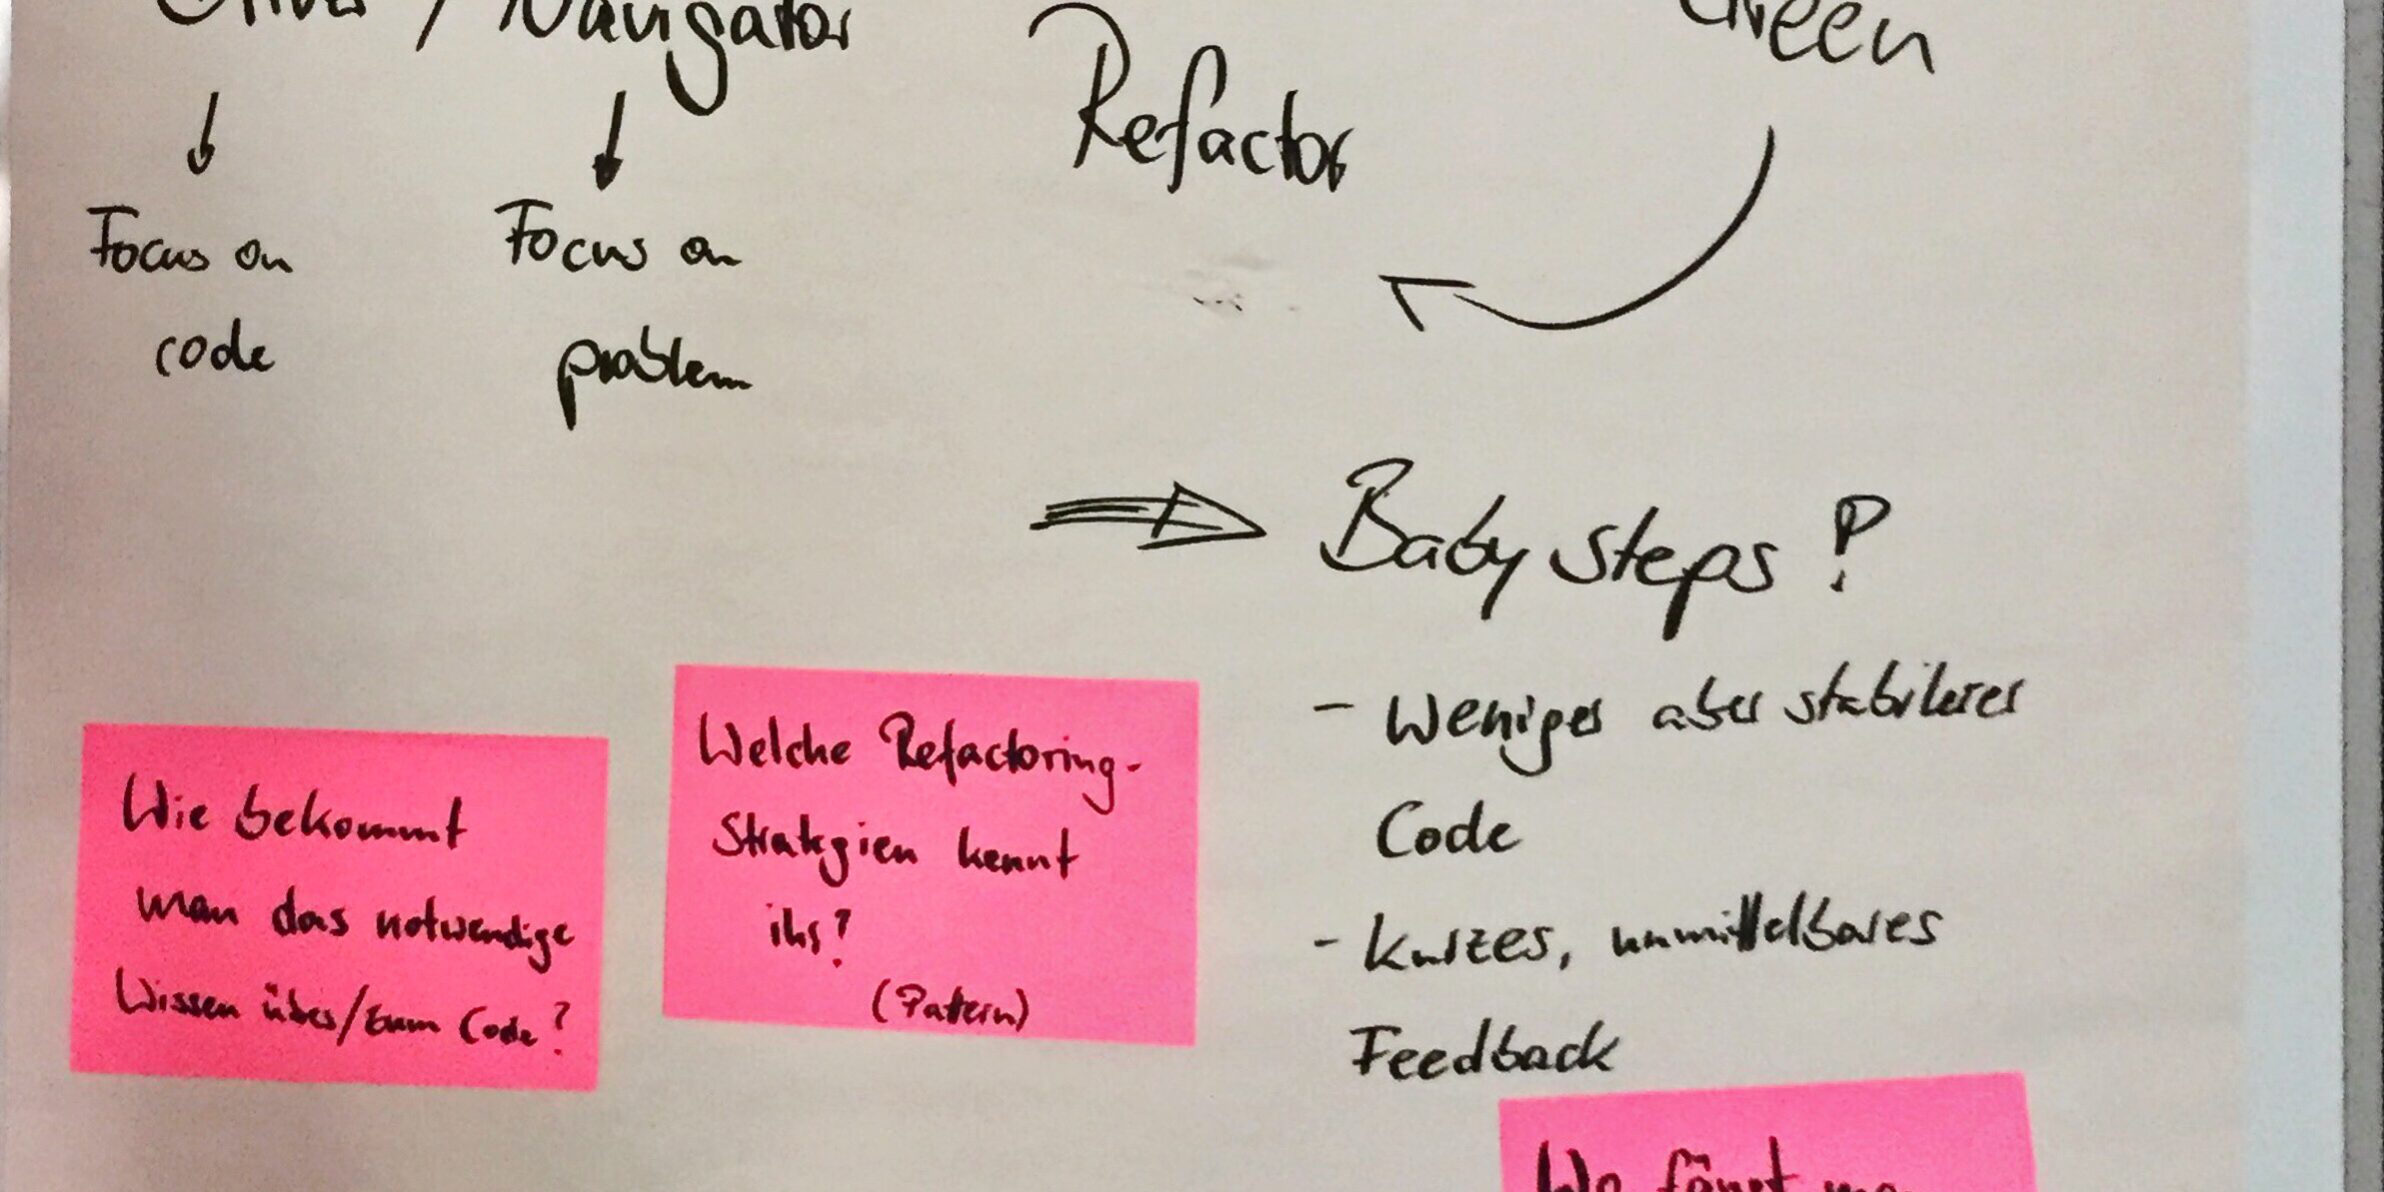 Driver / Navigator
Focus on
code
Focus on
problem
Refactor
Green
Baby steps ?
- Weniger aber stabileres
Code
- Kurzes, unmittelbares
Feedback
Wie bekommt
man das notwendige
Wissen über/zum Code?
Welche Refactoring-
Strategien kennt
ihr?
(Pattern)
Wo fängt